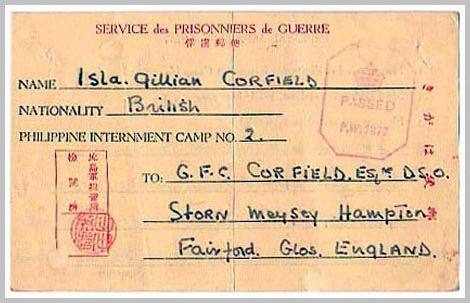 SERVICE des PRISONNIERS de GUERRE
俘虜郵便
NAME Isla. Gillian CORFIELD
NATIONALITY British
PHILIPPINE INTERNMENT CAMP NO. 2.
PASSED
P.W.
TO: G.F.C. CORFIELD. Esqre D.S.O.
STORN Meysey Hampton
Fairford. Glos. ENGLAND.